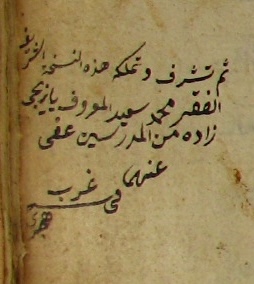 ثم تشرف و تملكه هذه النسخة الشريفة
الفقير محمد سعيد المعروف يازيجي
زاده من المدرسين عفى
عنهما
في غرب